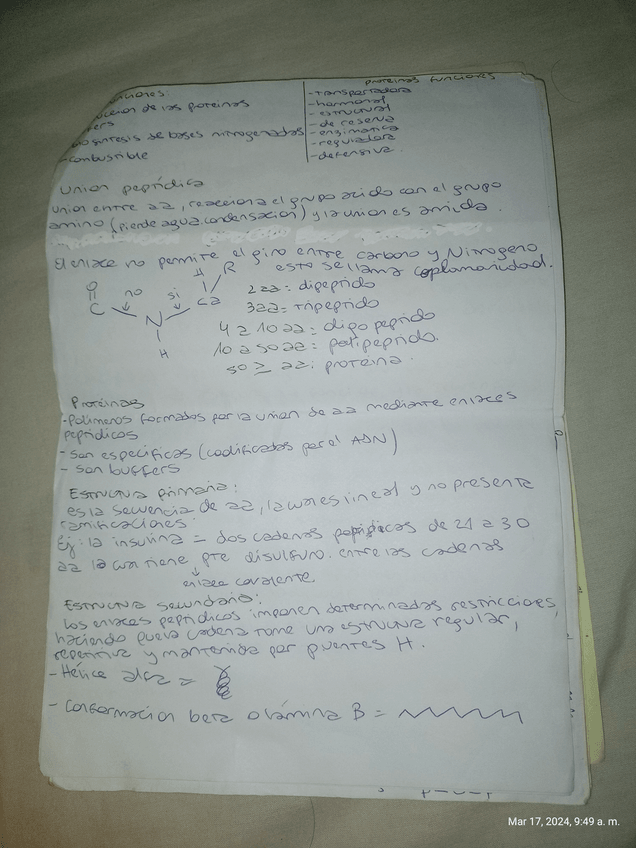 ciones:
de las proteinas
ffers
sintesis de bases nitrogenadas
-combustible
proteinas funciones
-transportadora
-hormonal
-estructural
-de reserva
-enzimatica
-reguladora
-defensiva.
Union peptidica
Union entre aa, reacciona el grupo acido con el grupo
amino (pierde agua, condensacion) y la union es amida.
El enlace no permite el giro entre carbono y Nitrogeno
esto se llama coplomanidad.
O
C
no
N
H
si
H
R
Ca
2aa = dipeptido
3aa = tripeptido
4 a 10 aa = oligopeptido
10 a 50 aa = polipeptido.
50 ≥ aa: proteina.
Proteinas
-Polimeros formados por la union de aa mediante enlaces
peptidicos
- son especificas (codificadas por el ADN)
- son buffers
Estructura primaria:
es la secuencia de aa, la cual es lineal y no presenta
ramificaciones.
Ej: la insulina = dos cadenas peptidicas de 21 a 30
aa la cual tiene pte disulfuro. entre las cadenas
enlace covalente.
Estructura secundaria:
Los enlaces peptidicos imponen determinadas restricciones,
haciendo que la cadena tome una estructura regular,
repetitiva y mantenida por puentes H.
- Hélice alfa =
- Conformacion beta o lámina B =
Mar 17, 2024, 9:49 a. m.